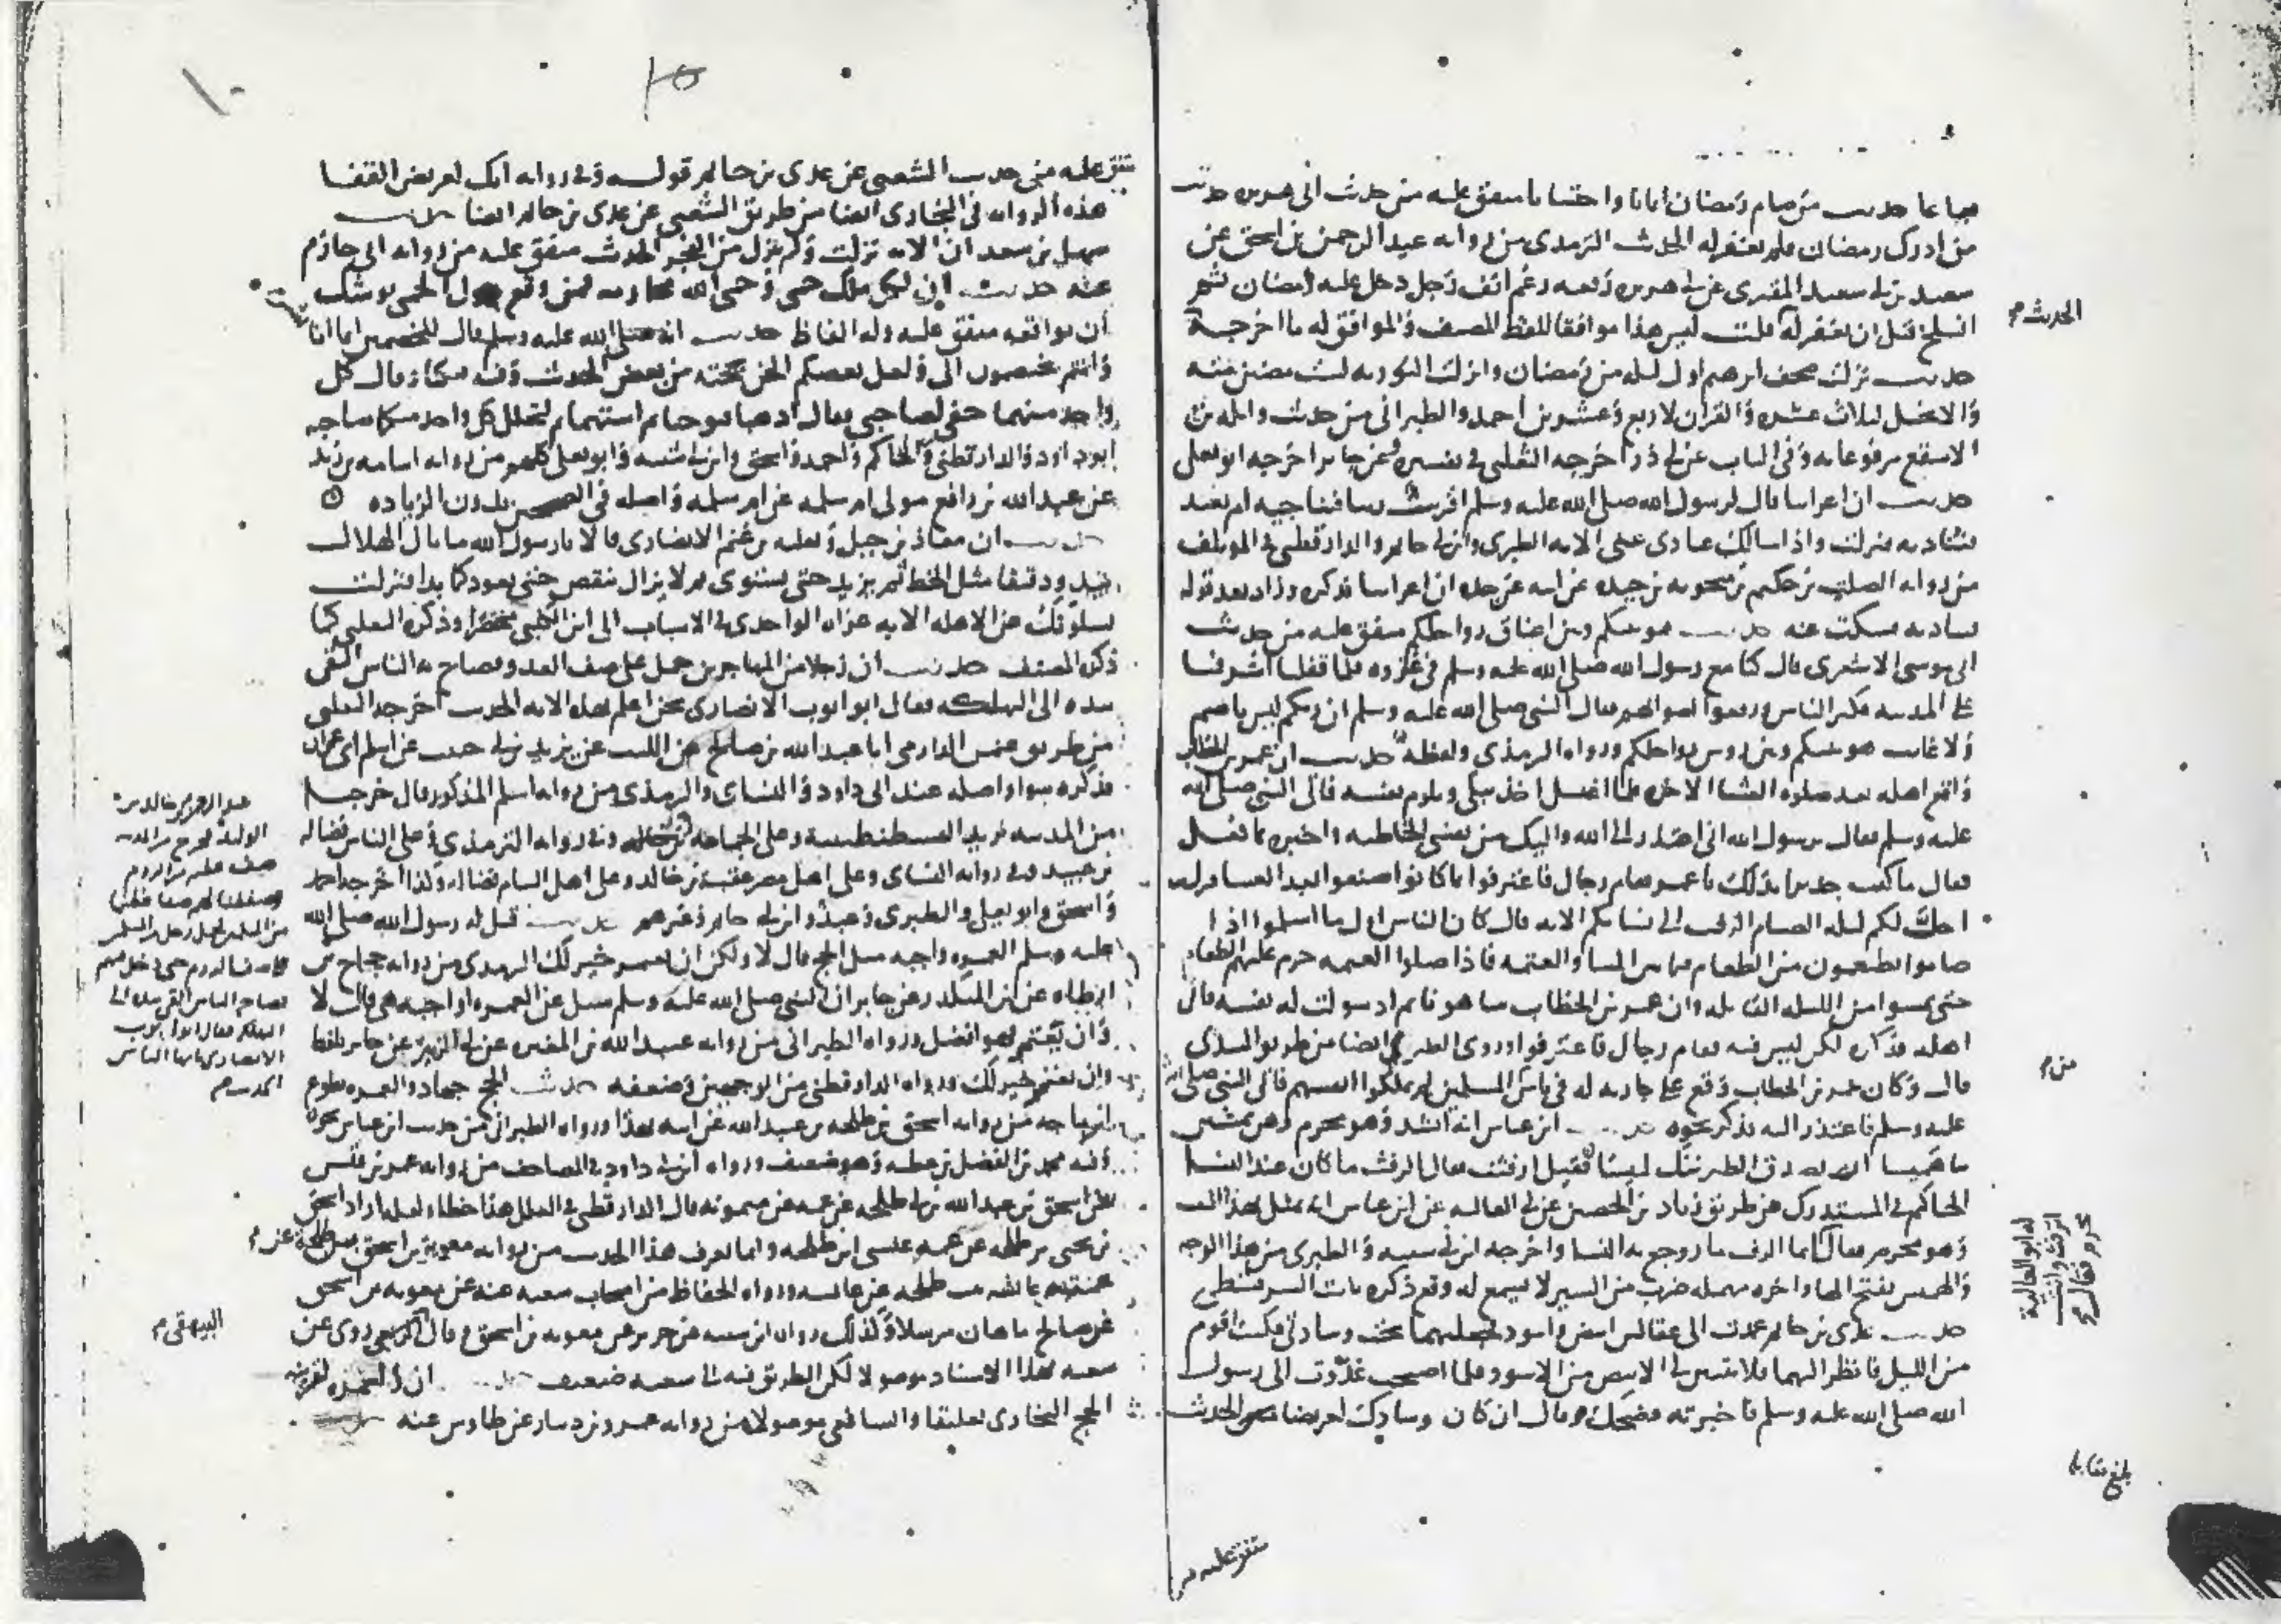 حديث من صام رمضان ايمانا واحتسابا متفق عليه من حديث ابي هريره حديث
من ادرك رمضان فلم يغفر له الحديث الترمذي من رواية عبد الرحمن بن اسحق عن
سعيد بن ابي سعيد المقبري عن ابي هريره رفعه رغم انف رجل دخل عليه رمضان ثم
انسلخ قبل ان يغفر له قلت ليس هذا موافقا للفظ المصنف والموافق له ما اخرجه
الحديث م
حديث نزلت صحف ابرهيم اول ليله من رمضان وانزلت التوريه لست مضين منه
والانجيل لثلاث عشره والقران لاربع وعشرين احمد والطبراني من حديث واثله بن
الاسقع مرفوعا به وفي الباب عن ابي ذر اخرجه الثعلبي في تفسيره وعن جابر اخرجه ابو يعلى
حديث ان اعرابيا قال لرسول الله صلى الله عليه وسلم اقريب ربنا فنناجيه ام بعيد
فنناديه فنزلت واذا سالك عبادي عني الايه الطبري وابن ابي حاتم والدارقطني في المؤتلف
من رواية الصلت بن حكيم بن معويه بن حيده عن ابيه عن جده ان اعرابيا فذكره وزاد بعد قوله
فنناديه فسكت عنه حديث هو بينكم وبين اعناق رواحلكم متفق عليه من حديث
ابي موسى الاشعري قال كنا مع رسول الله صلى الله عليه وسلم في غزوه فلما قفلنا اشرفنا
على المدينه فكبر الناس ورفعوا اصواتهم فقال النبي صلى الله عليه وسلم ان ربكم ليس باصم
ولا غايب هو بينكم وبين روس رواحلكم ورواه الترمذي ولفظه حديث ان عمر بن الخطاب
واقع اهله بعد صلوة العشا الاخره فلما اغتسل اخذ يبكي ويلوم نفسه فاتى النبي صلى الله
عليه وسلم فقال يرسول الله اني اعتذر الى الله واليك من نفسي الخاطيه واخبره بما فعل
فقال ما كنت جديرا بذلك يا عمر فقام رجال فاعترفوا بما كانوا صنعوا بعد العشا فنزلت
احل لكم ليله الصيام الرفث الى نسايكم الايه قال كان الناس اول ما اسلموا اذا
صاموا يطعمون من الطعام فيما بين المسا والعتمه فاذا صلوا العتمه حرم عليهم الطعام
حتى يمسوا من الليله القابله وان عمر بن الخطاب بينما هو نايم اذ سولت له نفسه فاتى
اهله فذكره لكن ليس فيه فقام رجال فاعترفوا وروى الطبري ايضا من طريق السدي
قال وكان عمر بن الخطاب وقع على جاريه له في ناس من المسلمين لم يملكوا انفسهم فاتى النبي صلى الله
من م
عليه وسلم فاعتذر اليه فذكر نحوه حديث ابن عباس انه انشد وهو محرم وهن يمشين
بنا هميسا ان يصدق الطير ننك لميسا فقيل ارفثت فقال الرفث ما كان عند النسا
الحاكم في المستدرك من طريق زياد بن الحصين عن ابي العاليه عن ابن عباس انه تمثل بهذا البيت
وهو محرم فقال انما الرفث ما روجع به النسا واخرجه ابن ابي شيبه والطبري من هذا الوجه
له ابو العالية
اترفث وانت
محرم فقال م
والهميس بفتح الها واخره مهمله ضرب من السير لا يسمع له وقع ذكره ثابت السرقسطي
حديث عدي بن حاتم عمدت الى عقالين ابيض واسود فجعلتهما تحت وسادتي فكنت اقوم
من الليل فانظر اليهما فلا يتبين لي الابيض من الاسود فلما اصبحت غدوت الى رسول
الله صلى الله عليه وسلم فاخبرته فضحك وقال ان كان وسادك لعريضا الحديث
بلغ مقابله
متفق عليه من
١٠
متفق عليه من حديث الشعبي عن عدي بن حاتم قوله وفي روايه انك لعريض القفا
هذه الروايه في البخاري ايضا من طريق الشعبي عن عدي بن حاتم ايضا حديث
سهل بن سعد ان الايه نزلت ولم ينزل من الفجر الحديث متفق عليه من روايه ابي حازم
عنه حديث ان لكل ملك حمى وحمى الله محارمه فمن وقع حول الحمى يوشك
ان يواقعه متفق عليه وله الفاظ حديث انه صلى الله عليه وسلم قال للخصمين انما انا بشر
وانتم تختصمون الي ولعل بعضكم الحن بحجته من بعض الحديث وفيه فبكيا وقال كل
واحد منهما حقي لصاحبي فقال اذهبا فتوخيا ثم استهما ثم ليحلل كل واحد منكما صاحبه
ابو داود والدارقطني والحاكم واحمد واسحق وابن ابي شيبه وابو يعلى كلهم من روايه اسامه بن زيد
عن عبد الله بن رافع مولى ام سلمه عن ام سلمه واصله في الصحيحين بدون الزياده
حديث ان معاذ بن جبل وثعلبه بن غنم الانصاري قالا يا رسول الله ما بال الهلال
يبدو دقيقا مثل الخيط ثم يزيد حتى يستوي ثم لا يزال ينقص حتى يعود كما بدا فنزلت
يسلونك عن الاهله الايه عزاه الواحدي في الاسباب الى ابن الكلبي مختصرا وذكره الثعلبي كما
ذكره المصنف حديث ان رجلا من المهاجرين حمل على صف العدو فصاح به الناس القى
بيده الى التهلكه فقال ابو ايوب الانصاري نحن اعلم بهذه الايه الحديث اخرجه الثعلبي
من طريق عثمن الدارمي انا عبد الله بن صالح عن الليث عن يزيد بن ابي حبيب عن اسلم ابي عمران
فذكره سوا واصله عند ابي داود والنساي والترمذي من روايه اسلم المذكور قال خرجنا
من المدينه نريد القسطنطينيه وعلى الجماعه عبد الرحمن بن خالد وفي روايه الترمذي وعلى الناس فضاله
عبد الرحمن بن خالد بن
الوليد فخرج من المدينه
صف عظيم من الروم
وصففنا لهم صفا عظيما
من المسلمين فحمل رجل من المسلمين
على صف الروم حتى دخل فيهم
فصاح الناس القى بيده الى
التهلكه فقال ابو ايوب
الانصاري يا ايها الناس
الحديث م
بن عبيد وفي روايه النساي وعلى اهل مصر عقبة بن عامر وعلى اهل الشام فضاله وكذا اخرجه احمد
واسحق وابو يعلى والطبري وعبد وابن ابي حاتم وغيرهم حديث قيل له رسول الله صلى الله
عليه وسلم العمره واجبه مثل الحج قال لا ولكن ان تعتمر خير لك الترمذي من روايه حجاج بن
ارطاه عن ابن المنكدر عن جابر ان النبي صلى الله عليه وسلم سئل عن العمره اواجبه هي قال لا
وان يعتمر فهو افضل ورواه الطبراني من روايه عبيد الله بن المغيره عن ابي الزبير عن جابر بلفظ
وان تعتمر خير لك ورواه الدارقطني من الوجهين وضعفه حديث الحج جهاد والعمره تطوع
ابن ماجه من روايه اسحق بن طلحه بن عبيد الله عن ابيه بهذا ورواه الطبراني من حديث ابن عباس نحوه
وفيه محمد بن الفضل بن عطيه وهو ضعيف ورواه ابن ابي داود في المصاحف من روايه عمر بن قيس
عن اسحق بن عبد الله بن ابي طلحه عن عمه عن ميمونه قال الدارقطني في العلل هذا خطا ولعله اراد اسحق
بن يحيى بن طلحه عن عمه عيسى بن طلحه وانما نعرف هذا الحديث من روايه معويه بن اسحق بن طلحه
عن م
عمته عايشه بنت طلحه عن عايشه ورواه الحفاظ من اصحاب شعبه عنه عن معويه بن اسحق
عن صالح ماهان مرسلا وكذلك رواه ابن ابي شيبه عن جرير عن معويه بن اسحق وقال روي عن
البيهقي م
شعبه بهذا الاسناد موصولا لكن الطريق فيه الى شعبه ضعيف حديث ان العمره لقرينه
الحج البخاري تعليقا والشافعي موصولا من روايه عمرو بن دينار عن طاوس عنه حديث